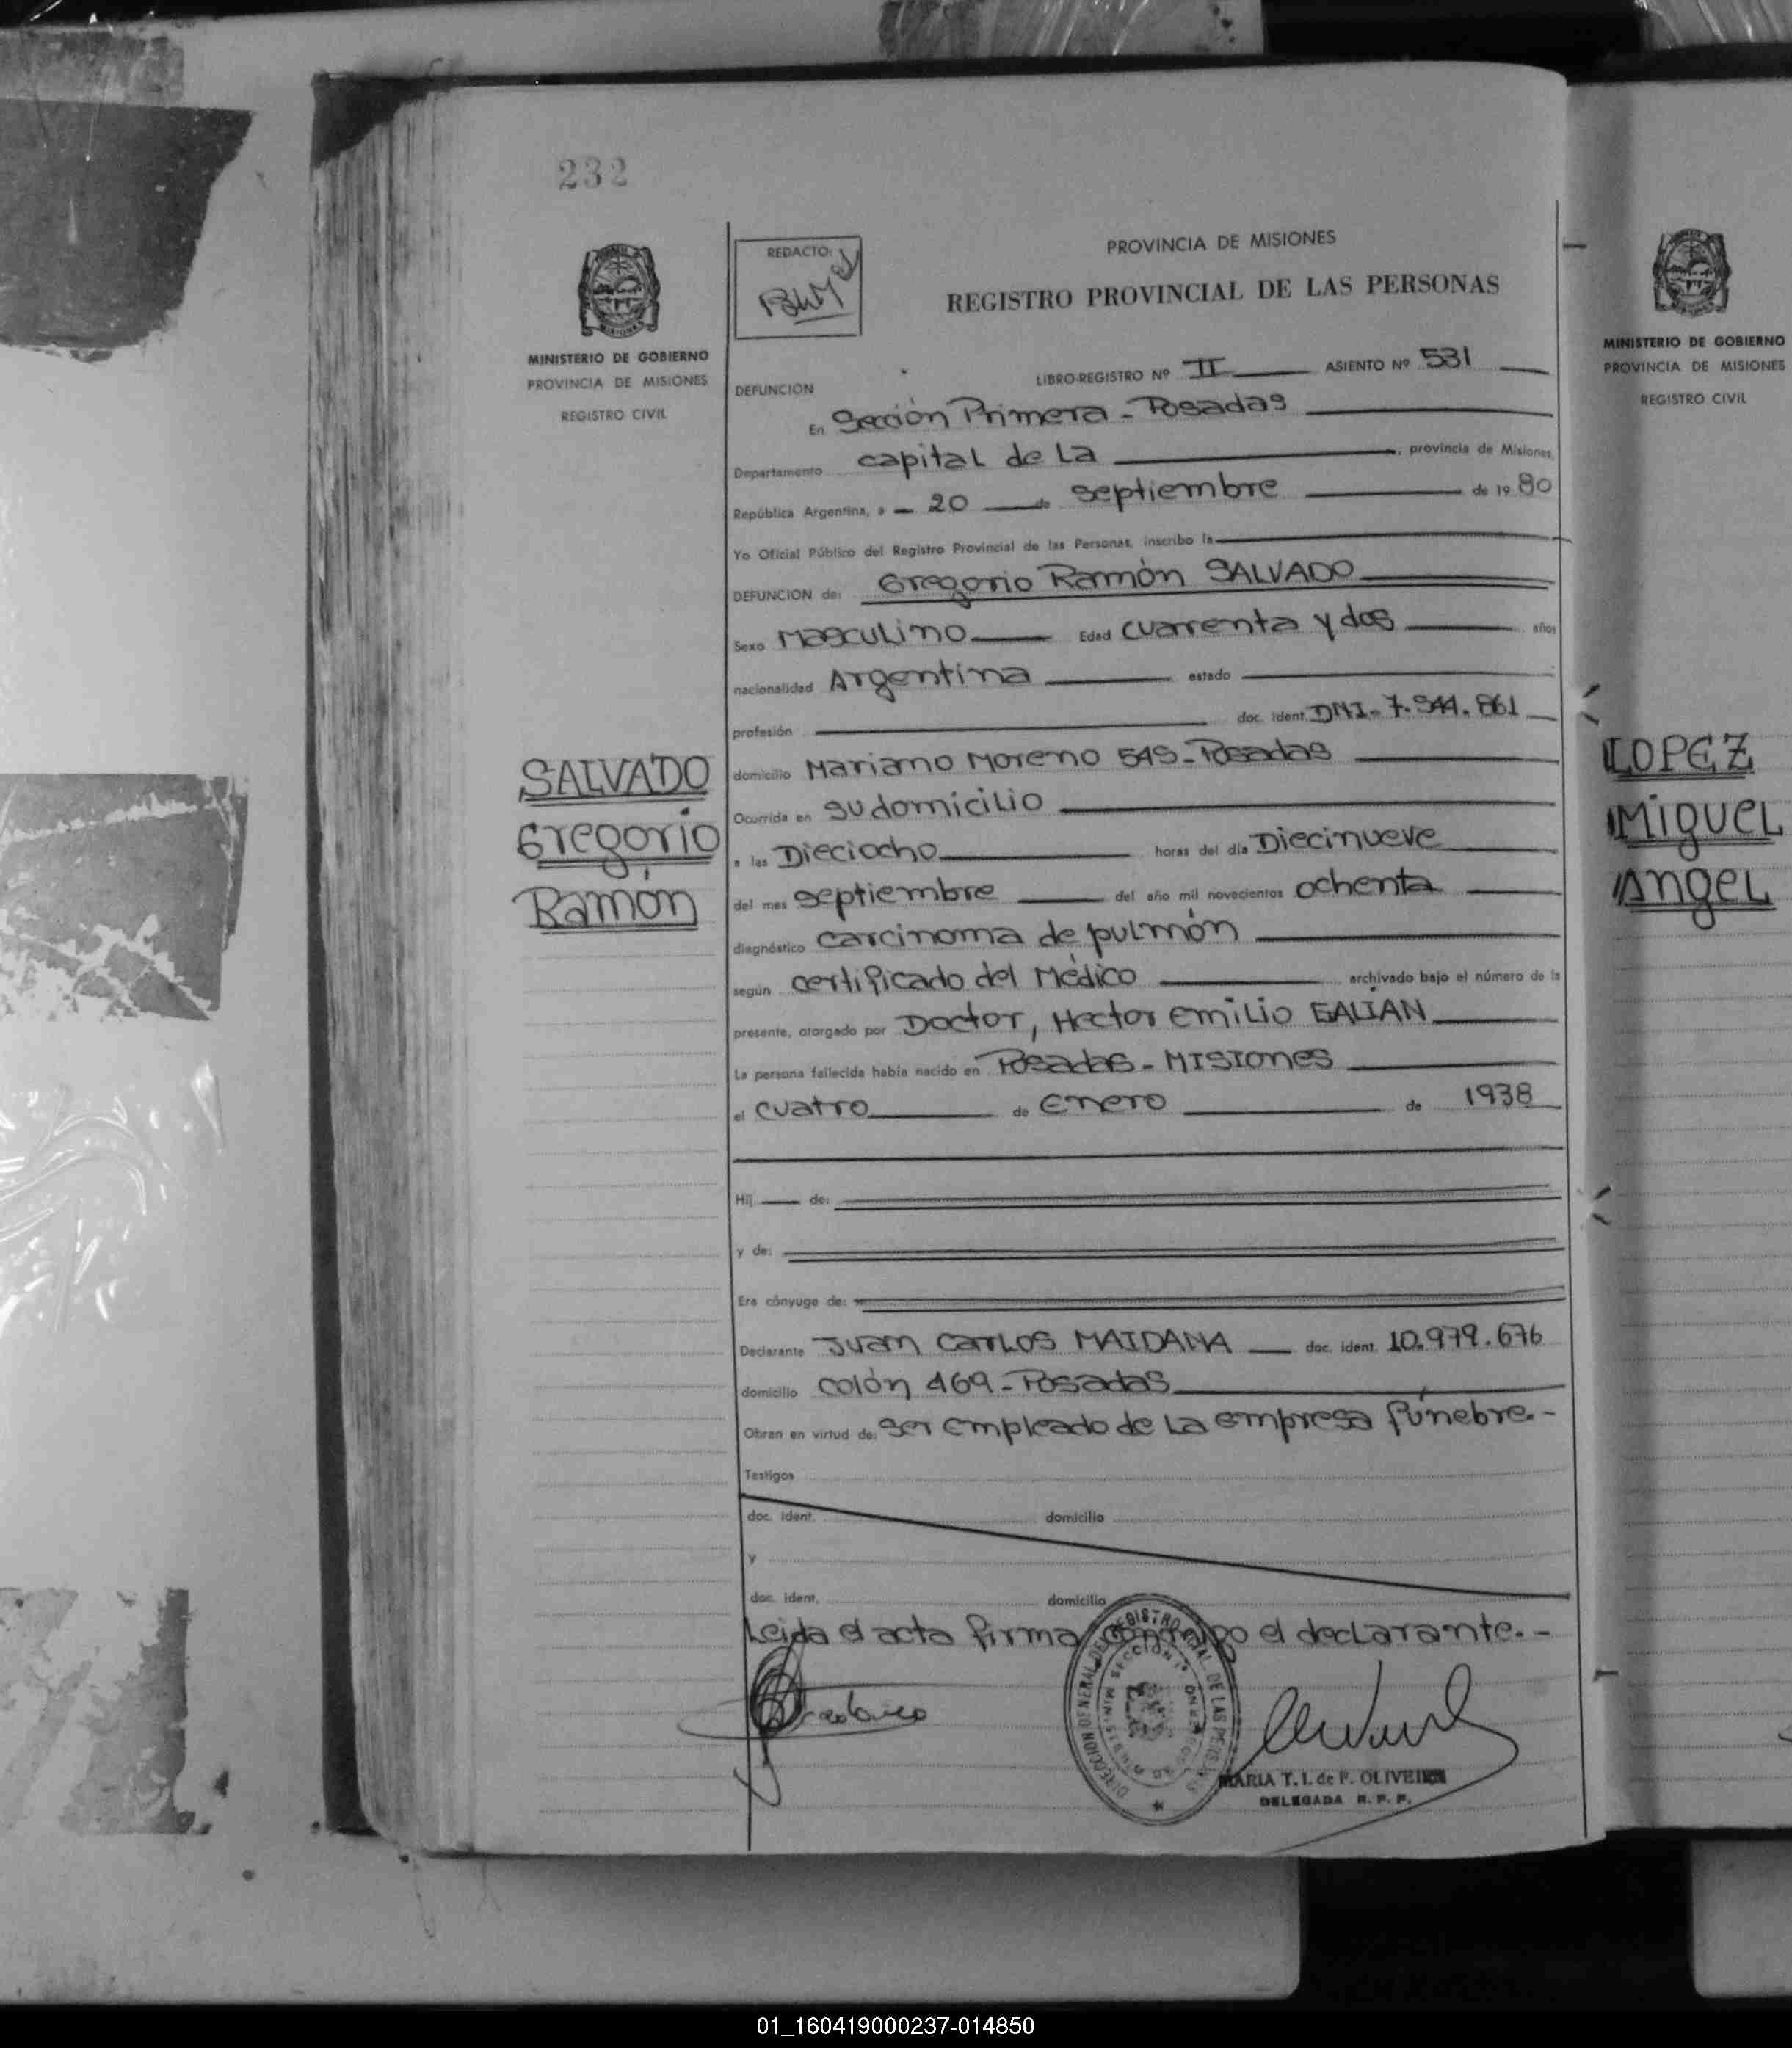 232
MINISTERIO DE GOBIERNO
PROVINCIA DE MISIONES
REGISTRO CIVIL
SALVADO
Gregorio
Ramón
REDACTO:
PROVINCIA DE MISIONES
REGISTRO PROVINCIAL DE LAS PERSONAS
LIBRO-REGISTRO Nº II ASIENTO Nº 531
DEFUNCION
En Sección Primera - Posadas
Departamento capital de La, provincia de Misiones,
República Argentina, a - 20 de septiembre de 1980
Yo Oficial Público del Registro Provincial de las Personas, inscribo la
DEFUNCION de: Gregorio Ramón SALVADO
Sexo Masculino Edad cuarenta y dos años
nacionalidad Argentina estado
profesión doc. ident. DNI-7.544.861
domicilio Mariano Moreno 549-Posadas
Ocurrida en su domicilio
a las Dieciocho horas del día Diecinueve
del mes septiembre del año mil novecientos ochenta
diagnóstico carcinoma de pulmón
según certificado del Médico archivado bajo el número de la
presente, otorgado por Doctor, Hector Emilio GALIAN
La persona fallecida había nacido en Posadas - MISIONES
el cuatro de Enero de 1938
Hij de:
y de:
Era cónyuge de:
Declarante Juan Carlos MAIDANA doc. ident. 10.979.676
domicilio Colón 469-Posadas
Obran en virtud de: ser empleado de la empresa fúnebre.-
Testigos
doc. ident. domicilio
y
doc. ident. domicilio
Leida el acta firma conmigo el declarante.-
DIRECCION GENERAL DEL REGISTRO PCIAL. DE LAS PERSONAS
SECCION 1ª
MARIA T. I. de P. OLIVEIRA
DELEGADA R. P. P.
MINISTERIO DE GOBIERNO
PROVINCIA DE MISIONES
REGISTRO CIVIL
LOPEZ
Miguel
Angel
01_160419000237-014850